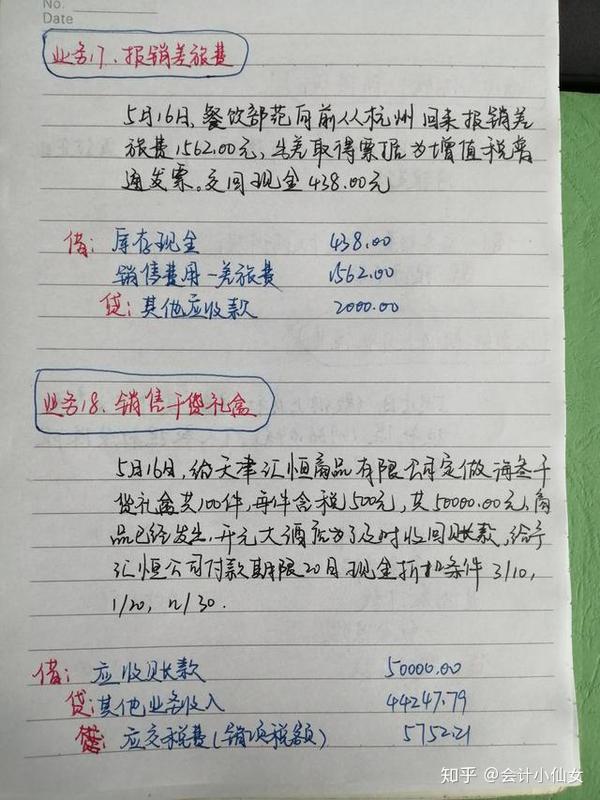 No.
Date
业务17、报销差旅费
5月16日,餐饮部范向前从杭州回来报销差
旅费1562.00元,出差取得票据为增值税普
通发票。交回现金438.00元
借: 库存现金 438.00
销售费用—差旅费 1562.00
贷: 其他应收款 2000.00
业务18、销售干货礼盒
5月16日,给天津汇恒商品有限公司定做海参干
货礼盒共100件,每件含税500元,共50000.00元,商
品已经发出,开元大酒店为了及时收回账款,给予
汇恒公司付款期限20日现金折扣条件3/10,
1/20, n/30.
借: 应收账款 50000.00
贷: 其他业务收入 44247.79
应交税费(销项税额) 5752.21
知乎 @会计小仙女